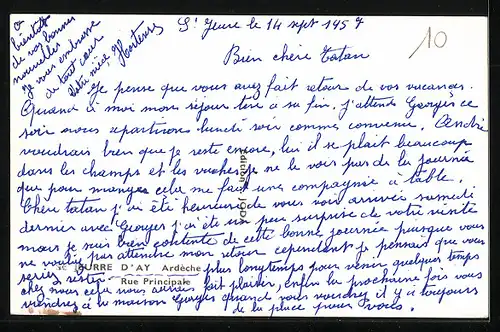 St Jeure le 14 sept 1957
10
Bien chère Tatan
Je pense que vous avez fait retour de vos vacances.
Quand à moi mon séjour tire a sa fin. J'attends Georges ce
soir nous repartirons lundi soir comme convenu. André
voudrais bien que je reste encore, lui il se plait beaucoup
dans les champs et les vaches je ne le vois pas de la journée
que pour manger cela me fait une compagnie à table.
Chère tatan j'ai été heureuse de vous voir arrivée samedi
dernier avec Georges j'ai été un peu surprise de votre visite
mais je suis bien contente de cette bonne journée puisque vous
ne vouliez pas attendre mon retour cependant je pensais que vous
seriez restée plus longtemps pour venir quelques temps
chez nous cela nous aurais fait plaisir, enfin la prochaine fois vous
viendrez à la maison Georges quand vous voudrez il y a toujours
de la place pour vous.
a
bientôt
de vos bonnes
nouvelles
Je vous embrasse
de tout cœur
Votre nièce Hortense
EURRE D'AY Ardèche
Rue Principale